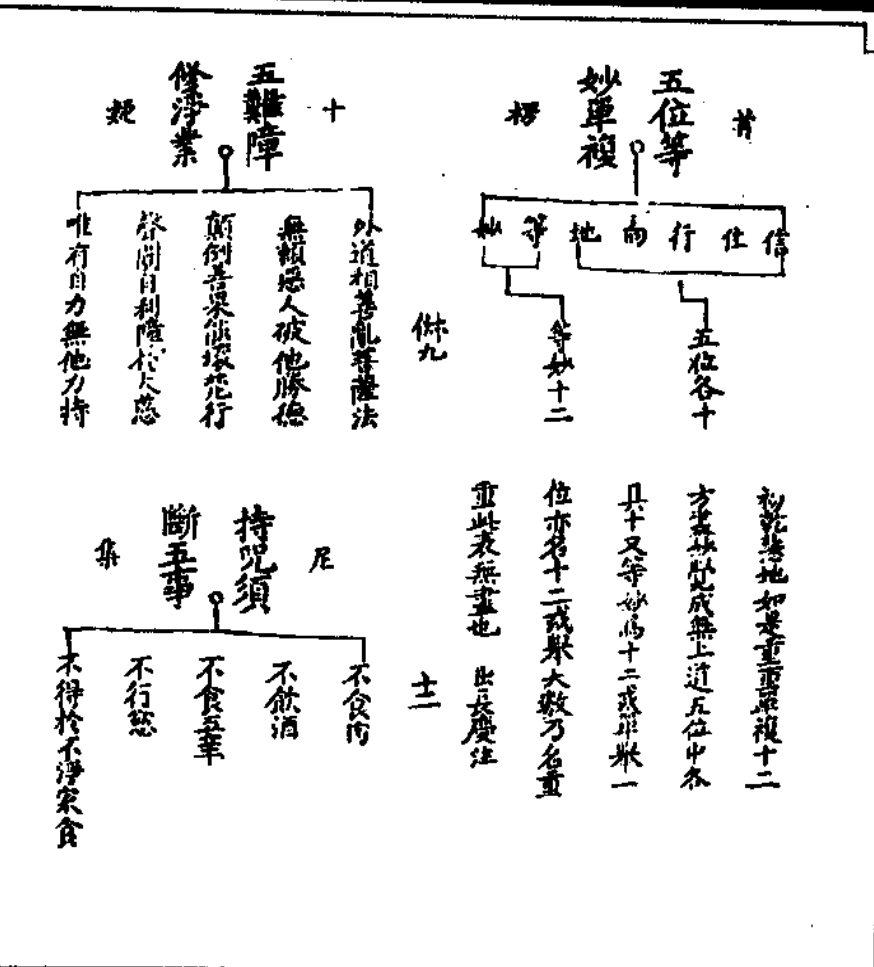 五位等
妙單複
楞
信
住
行
向
地
等
妙
五位各十
等妙十二
初乾慧地如是重重單複十二
方盡妙覺成無上道五位中各
具十又等妙為十二或單舉一
位亦名十二或舉大数乃名重
重此表無盡也 出長慶注
十
五難障
修淨業
外道相善亂菩薩法
無賴惡人破他勝德
顛倒善果能壞梵行
聲聞自利障於大慈
唯有自力無他力持
九
尼
持呪須
斷五事
集
不食肉
不飲酒
不食五辛
不行慾
不得於不淨家食
十二